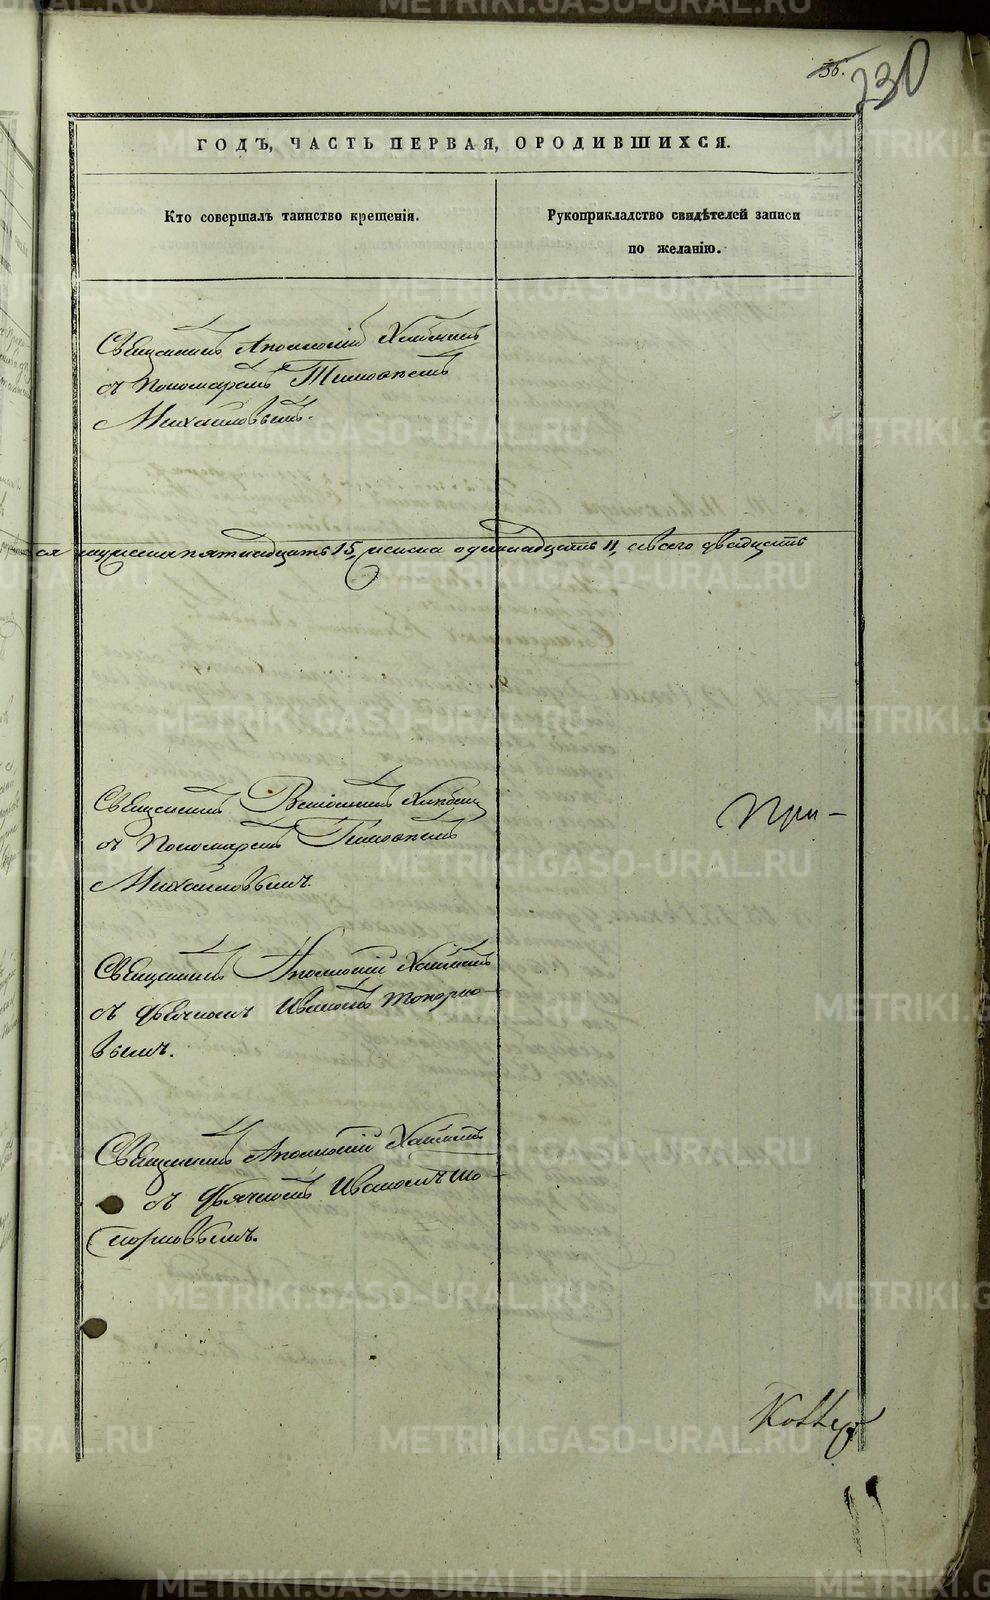 36.
230
ГОДЪ, ЧАСТЬ ПЕРВАЯ, О РОДИВШИХСЯ.
Кто совершалъ таинство крещенія.
Рукоприкладство свидѣтелей записи
по желанію.
Священникъ Аполлоній
съ Пономаремъ Тимоѳеемъ
Михайловымъ.
мужеска пятнадцать 15, женска одинадцать 11, а всего двадцать
Священникъ Веніаминъ
При-
съ Пономаремъ Тимоѳеемъ
Михайловымъ.
Священникъ Аполлоній
съ Дьячкомъ Иваномъ Топорко-
вымъ.
Священникъ Аполлоній
съ Дьячкомъ Иваномъ То-
порковымъ.
METRIKI.GASO-URAL.RU